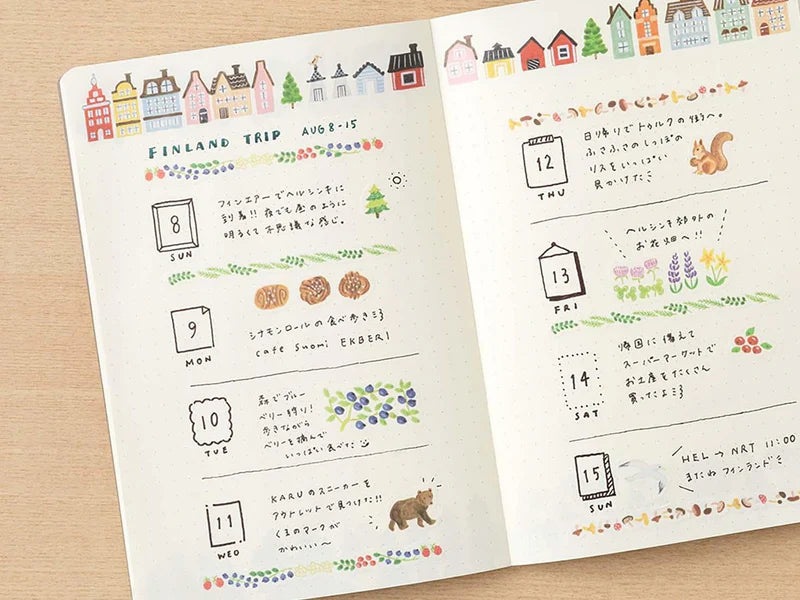 FINLAND TRIP AUG 8-15
8
SUN
フィンエアーでヘルシンキに
到着!! 夜でも昼のように
明るくて不思議な感じ。
9
MON
シナモンロールの食べ歩き
cafe Suomi EKBERI
10
TUE
森でブルー
ベリー狩り!
歩きながら
ベリーを摘んで
いっぱい食べた
11
WED
KARUのスニーカーを
アウトレットで見つけた!!
くまのマークが
かわいい〜
12
THU
日帰りでトゥルクの街へ。
ふさふさのしっぽの
リスをいっぱい
見かけた
13
FRI
ヘルシンキ郊外の
お花畑へ!!
14
SAT
帰国に備えて
スーパーマーケットで
お土産をたくさん
買ったよ
15
SUN
HEL→NRT 11:00
またねフィンランド